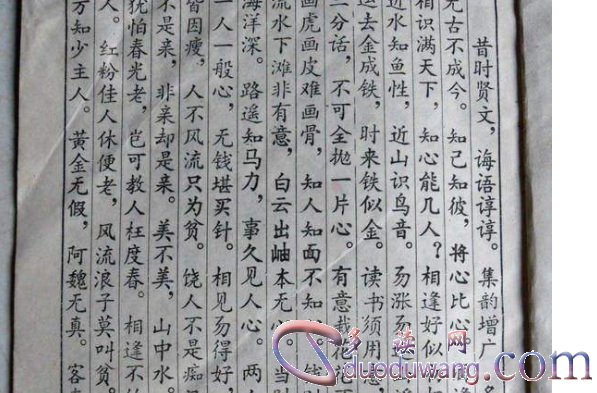 昔时贤文，诲语谆谆。集韵增广，多
无古不成今。知己知彼，将心比心。
相识满天下，知心能几人？相逢好似
近水知鱼性，近山识鸟音。易涨易
运去金成铁，时来铁似金。读书须用意，
二分话，不可全抛一片心。有意栽花花
画虎画皮难画骨，知人知面不知
流水下滩非有意，白云出岫本无心。当时
海洋深。路遥知马力，事久见人心。两人
一人一般心，无钱堪买针。相见易得好，
皆因瘦，人不风流只为贫。饶人不是痴
不是亲，非亲却是亲。美不美，山中水。
犹怕春光老，岂可教人枉度春。相逢不
人。红粉佳人休便老，风流浪子莫叫贫。
方知少主人。黄金无假，阿魏无真。客
多读网
duoduwang.com